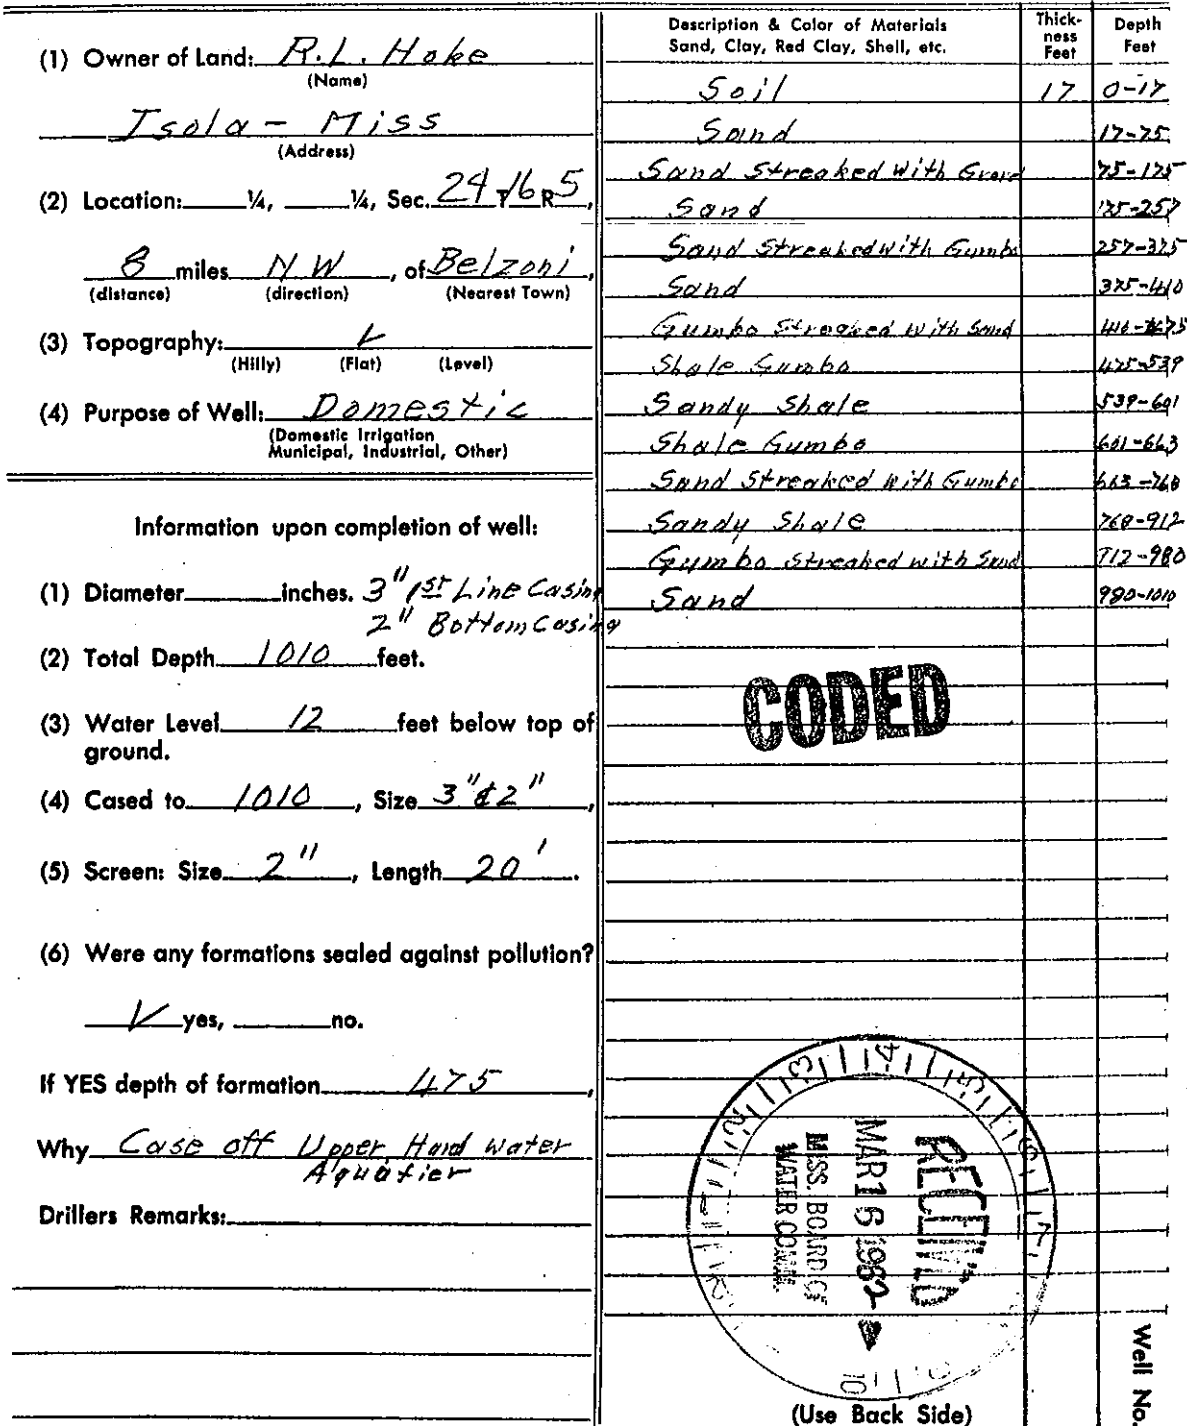 (1) Owner of Land: R.L. Hoke
(Name)
Isola - Miss
(Address)
(2) Location: ¼, ¼, Sec. 24 T 16 R 5,
8 miles N W, of Belzoni,
(distance) (direction) (Nearest Town)
(3) Topography: ✓
(Hilly) (Flat) (Level)
(4) Purpose of Well: Domestic
(Domestic Irrigation
Municipal, Industrial, Other)
Information upon completion of well:
(1) Diameter inches. 3" 1st Line Casing
2" Bottom Casing
(2) Total Depth 1010 feet.
(3) Water Level 12 feet below top of
ground.
(4) Cased to 1010, Size 3" & 2",
(5) Screen: Size 2", Length 20'.
(6) Were any formations sealed against pollution?
✓ yes, no.
If YES depth of formation 475,
Why Case off Upper Hard Water
Aquafier
Drillers Remarks:
Description & Color of Materials
Sand, Clay, Red Clay, Shell, etc.
Thick-
ness
Feet
Depth
Feet
Soil 17 0-17
Sand 17-75
Sand Streaked with Grave 75-175
Sand 175-257
Sand Streaked with Gumbo 257-375
Sand 375-410
Gumbo Streaked with Sand 410-475
Shale Gumbo 475-539
Sandy Shale 539-601
Shale Gumbo 601-663
Sand Streaked with Gumbo 663-768
Sandy Shale 768-912
Gumbo Streaked with Sand 912-980
Sand 980-1010
CODED
RECEIVED
MAR 16 1982
MISS. BOARD OF
WATER COMM.
(Use Back Side)
Well No.